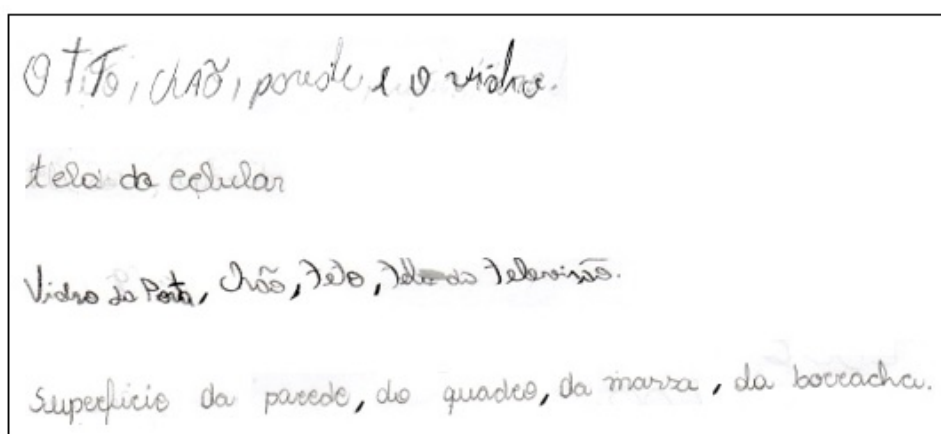 O teto, chão, parede e o vidro.
tela do celular
Vidro da Porta, Chão, Teto, Tela da Televisão.
Superficie da parede, do quadro, da marza, da borracha.